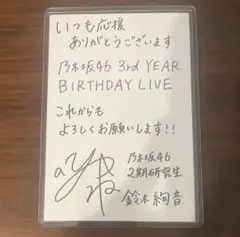 いつも応援
ありがとうございます
乃木坂46 3rd YEAR
BIRTHDAY LIVE
これからも
よろしくお願いします!!
乃木坂46
2期研究生
鈴木絢音